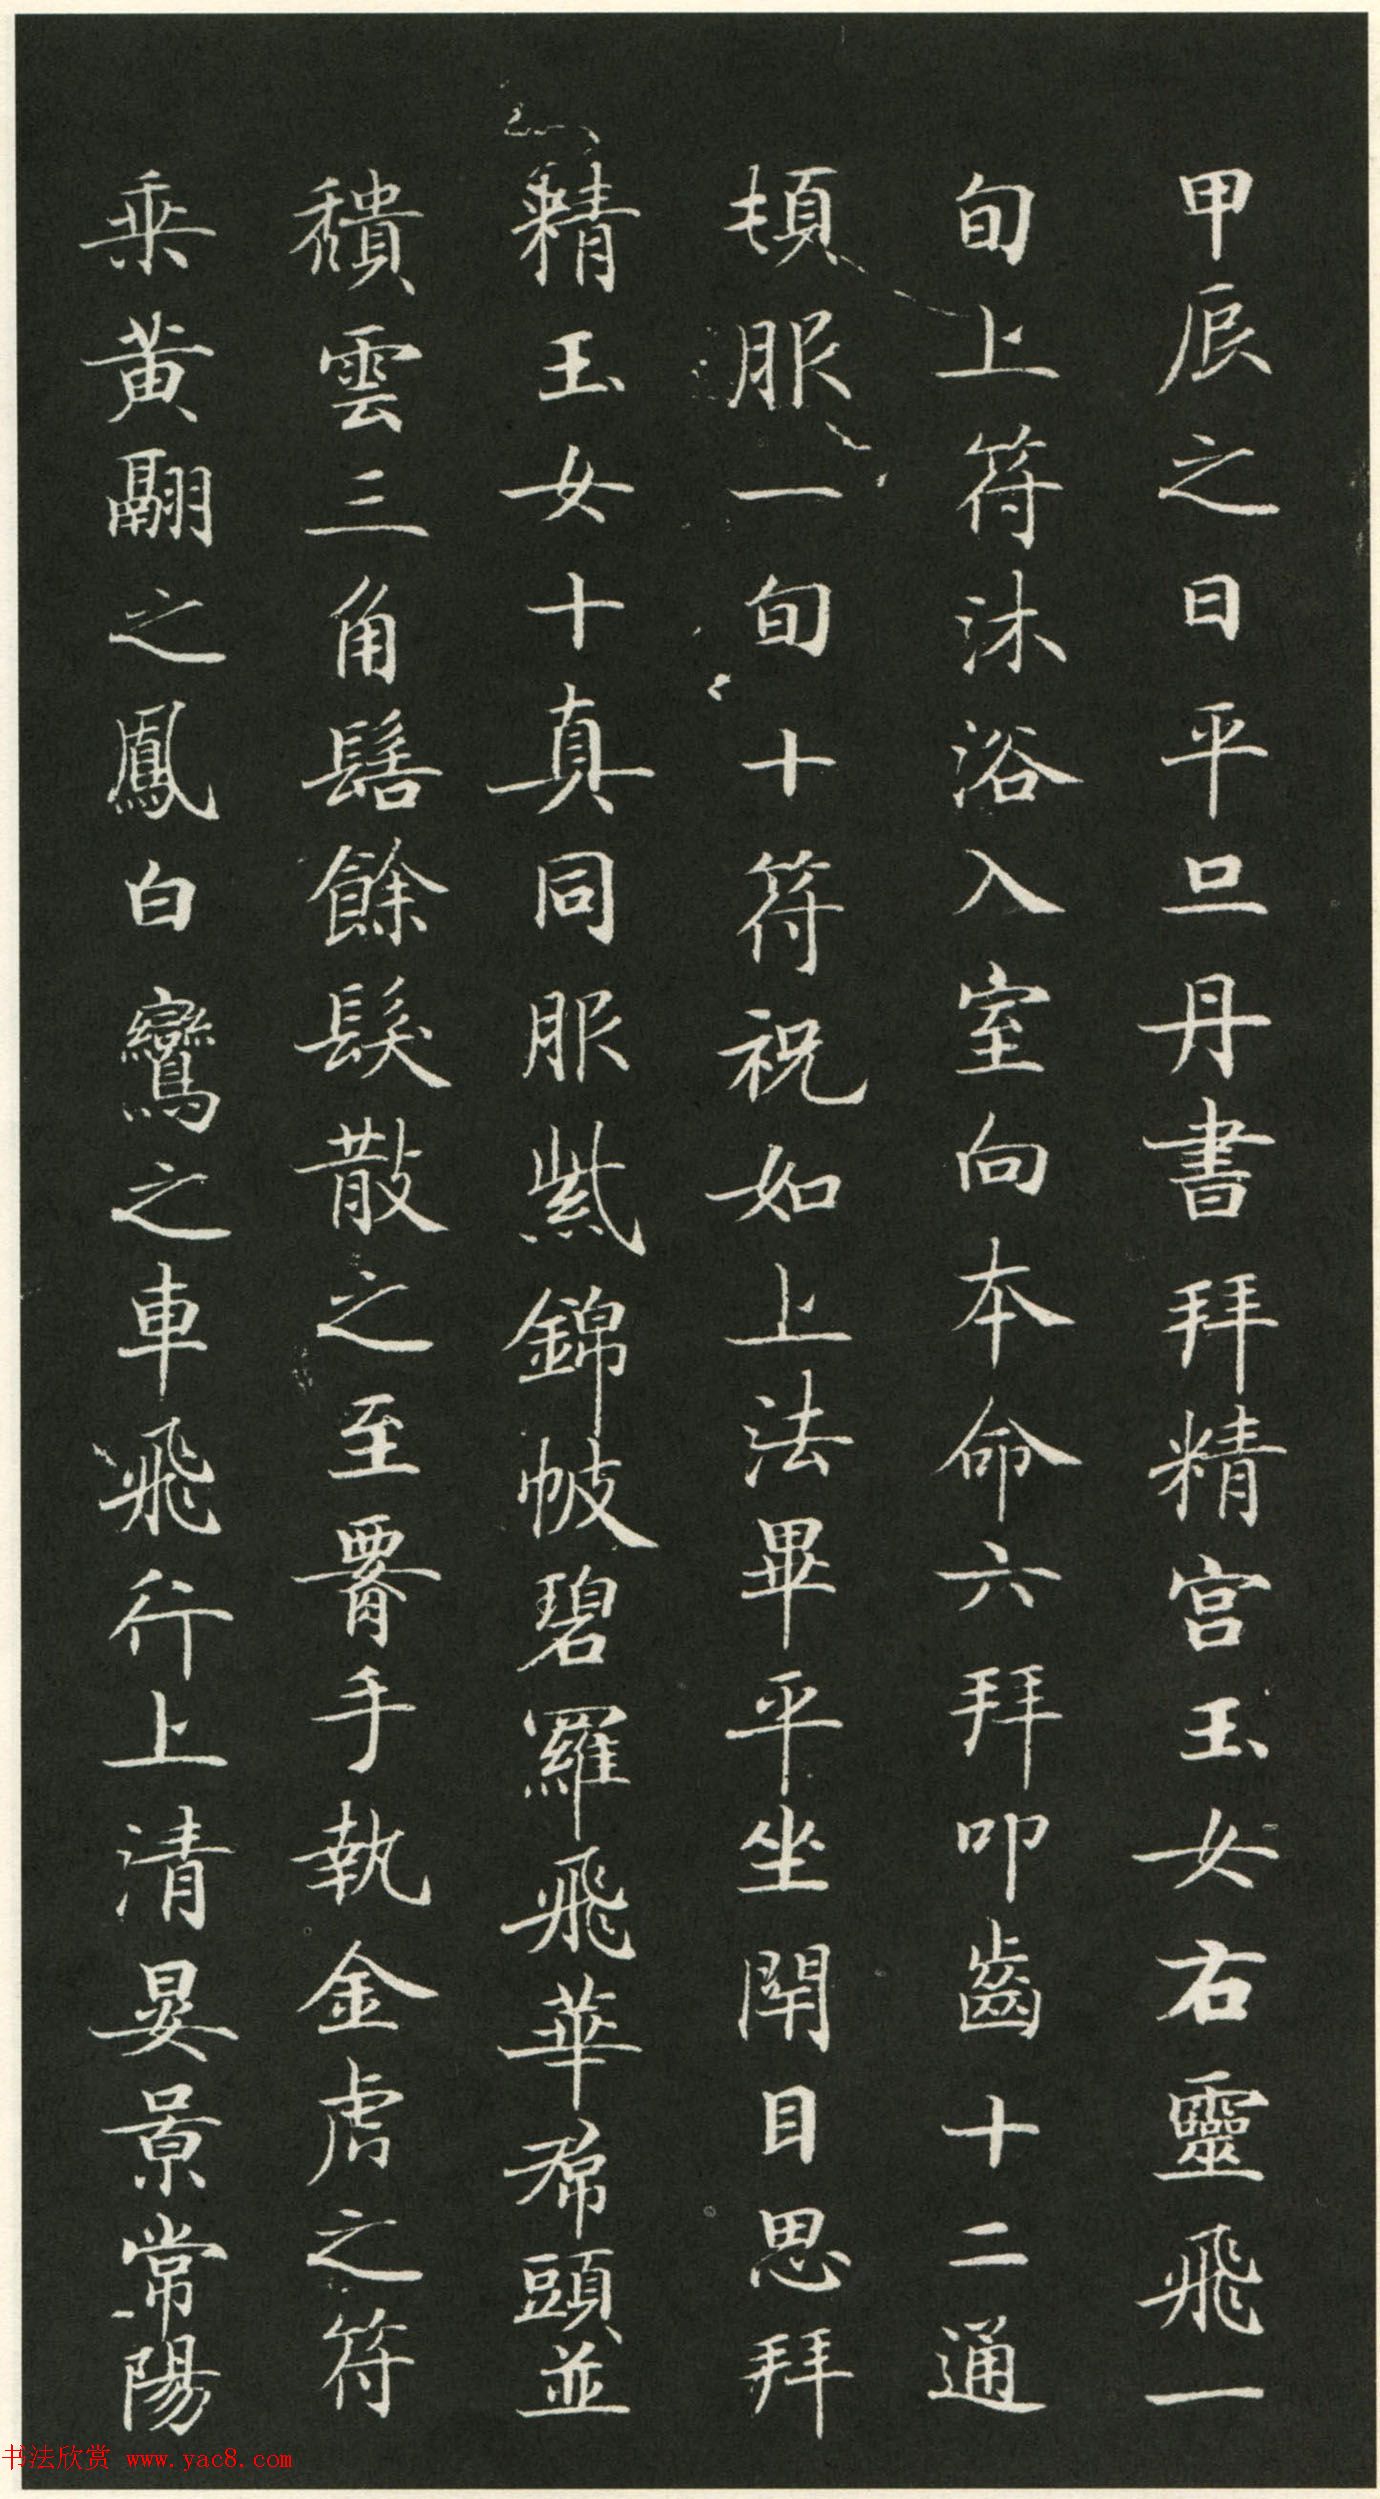 甲辰之日平旦丹書拜精宫玉女右靈飛一
旬上符沐浴入室向本命六拜叩齒十二通
頓服一旬十符祝如上法畢平坐閉目思拜
精玉女十真同服紫錦帔碧羅飛華帬頭並
穨雲三角髻餘髮散之至腰手執金虎之符
乘黄翮之鳳白鸞之車飛行上清晏景常陽
书法欣赏 www.yac8.com